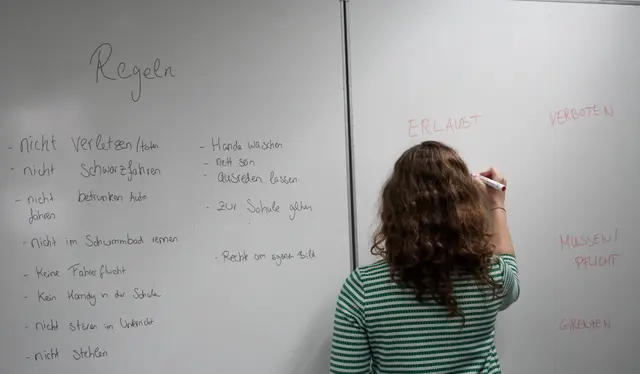 Regeln
- nicht verletzen/töten
- nicht schwarzfahren
- nicht betrunken Auto
fahren
- nicht im Schwimmbad rennen
- Keine Fahrerflucht
- Kein Handy in der Schule
- nicht stören im Unterricht
- nicht stehlen
- Hände waschen
- nett sein
- ausreden lassen
- zur Schule gehen
- Recht am eigenen Bild
ERLAUBT
VERBOTEN
MÜSSEN/
PFLICHT
GRENZEN